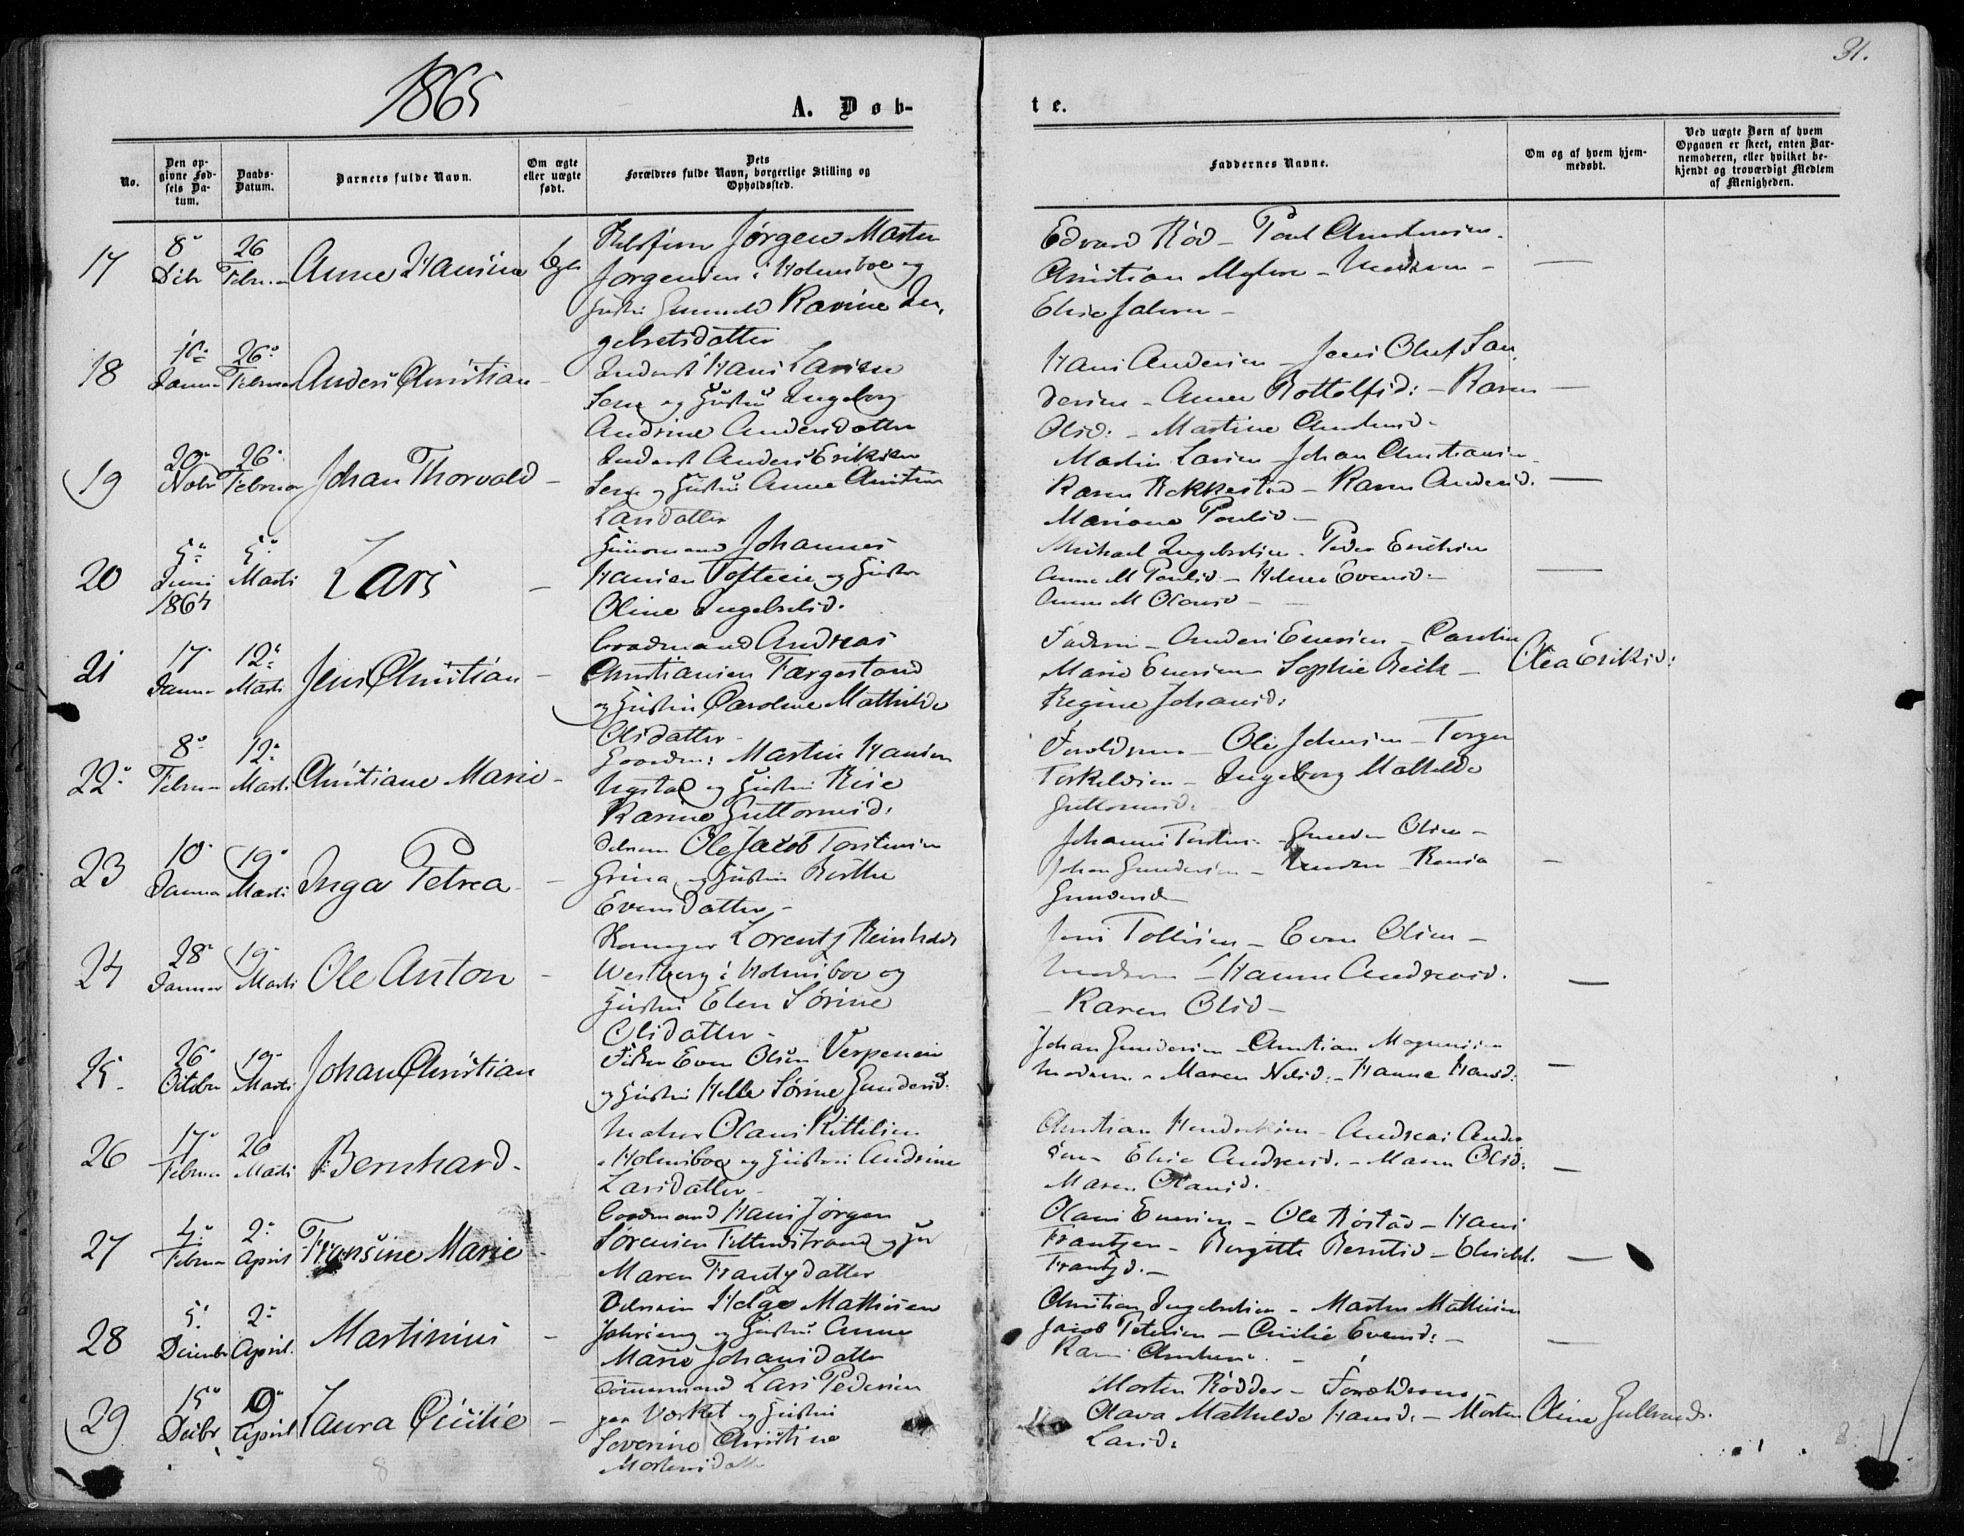 31.
1865
A. Døb-
te.
No.
Den op-
givne Fød-
sels Da-
tum.
Daabs-
Datum.
Barnets fulde Navn.
Om ægte
eller uægte
født.
Dets
Forældres fulde Navn, borgerlige Stilling og
Opholdssted.
Faddernes Navne.
Om og af hvem hjem-
medøbt.
Ved uægte Børn af hvem
Opgaven er skeet, enten Bar-
nemoderen, eller hvilket be-
kjendt og troværdigt Medlem
af Menigheden.
17
8
Dcbr
26
Februar
Anne Hansine
Ægte
Jørgen Martin
Jørgensen i Holmsboe og
Hustru Gunnild Karine In-
gebretsdatter
Edvard Rød - Poul Andersen
Christian Myhre - Moderen -
Elise
18
Januar
26
Februar
Anders Christian -
Inderst Hans Larsen
og Hustru Ingeborg
Andrine Andersdatter
Hans Andersen - Jens Oluf San-
dersen - Anne Rottolfsd: - Karen
Olsd: - Martine
19
20
Nobr
26
Februar
Johan Thorvald -
Inderst Anders Eriksen
og Hustru Anne Christine
Larsdatter
Martin Larsen - Johan Christiansen
Karen Rokkestad - Karen Andersd.
Mariane Poulsd -
20
5
Juni
1864
5
Marti
Lars -
Huusmand Johannes
Hansen Tofteeie og Hustru
Oline Ingebretsd.
Michael Ingebretsen - Peder Erichsen
Anne M Poulsd - Helene Evensd -
Anne M Olausd -
21
17
Januar
12
Marti
Jens Christian -
Gaardmand Andreas
Christiansen Færgestad
og Hustru Caroline Mathilde
Olsdatter -
Faderen - Anders Enersen - Caroline
Marie Enersen - Sophie Beck -
Regine Johansd:
Olea Eriksd:
22
8
Februar
12
Marti
Christiane Marie -
Gaardm: Martin Hansen
og Hustru
Karine Guttormsd:
Forældrene - Ole Johnsen - Torger
Torkildsen - Ingeborg Mathilde
Guttormsd.
23
10
Januar
19
Marti
Inga Petrea -
Ole Jacob Torstensen
Grina og Hustru Berthe
Evensdatter -
Johannes Torstens - Gunder Olsen -
Johan Gundersen - Moderen - Ronia
Gundersd -
24
28
Januar
19
Marti
Ole Anton -
Lorentz Reinholdt
Westberg i Holmsboe og
Hustru Elen Sørine
Olsdatter -
Jens Tollefsen - Even Olsen -
Moderen - Hanne Andreasd.
- Karen Olsd -
25
26
October
19
Marti
Johan Christian
Fisker Even Olsen
og Hustru Helle Sørine Gundersd.
Johan Gundersen - Christian Magnussen
Moderen - Maren Nilsd: - Hanne Hansd:
26
17
Februar
26
Marti
Bernhard -
Olaus Kittilsen
Holmsboe og Hustru Andrine
Larsdatter
Christian Hendriksen - Andreas Ander-
sen Elise Andreasd. - Maren Olsd:
Maren Olausd.
27
4
Februar
2
April
Fransine Marie -
Gaardmand Hans Jørgen
Sørensen Tittinstrand og Hu
Maren Frantzdatter
Olaus Enersen - Ole Røstad - Hans
Frantzen - Bergitte Berntsd - Elisebet
Frantzd. -
28
5
December
2
April.
Martinius -
Helge Mathisen
og Hustru Anne
Marie Johansdatter
Christian Ingebretsen - Martin Mathisen
Jacob Petersen - Cicilie Evensd: -
29
15
Decbr
9
April
Laura Cicilie -
Tømmermand Lars Pedersen
paa Værket og Hustru
Severine Christine
Mortensdatter
Morten Rødder - Forældrene
Olava Mathilde Hansd. - Morten
Larsd:
Oline Gulbrandsd.